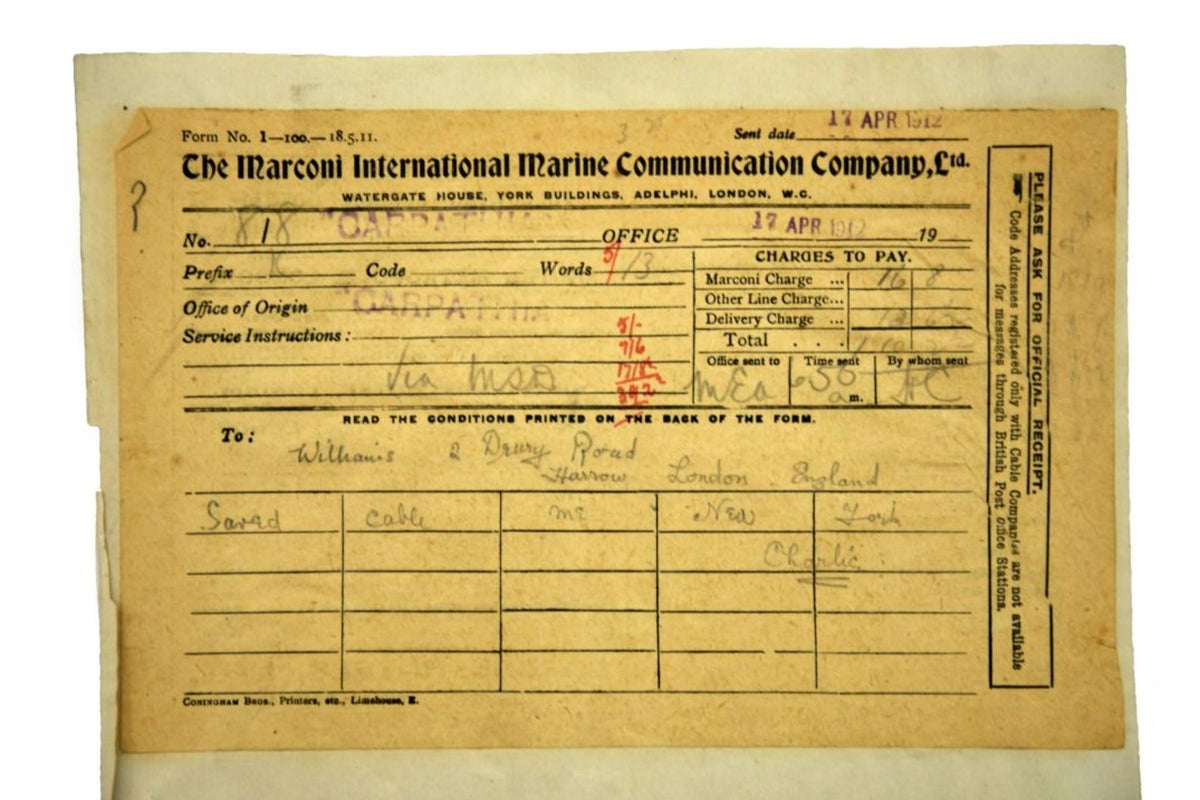 Form No. 1—100.—18.5.11.
Sent date 17 APR 1912
The Marconi International Marine Communication Company, Ltd.
WATERGATE HOUSE, YORK BUILDINGS, ADELPHI, LONDON, W.C.
No. 818 "CARPATHIA" OFFICE 17 APR 1912 19
Prefix K Code Words 13
CHARGES TO PAY.
Marconi Charge ... 16 8
Office of Origin "CARPATHIA"
Other Line Charge...
Delivery Charge ...
Service Instructions:
Total . . .
5/-
7/6
Via MSD
Office sent to Time sent By whom sent
MEa 650 am.
READ THE CONDITIONS PRINTED ON THE BACK OF THE FORM.
To: Williams 2 Drury Road
Harrow London England
Saved cable me New York
Charlie
CONINGHAM BROS., Printers, etc., Limehouse, E.
PLEASE ASK FOR OFFICIAL RECEIPT.
Code Addresses registered only with Cable Companies are not available
for messages through British Post Office Stations.